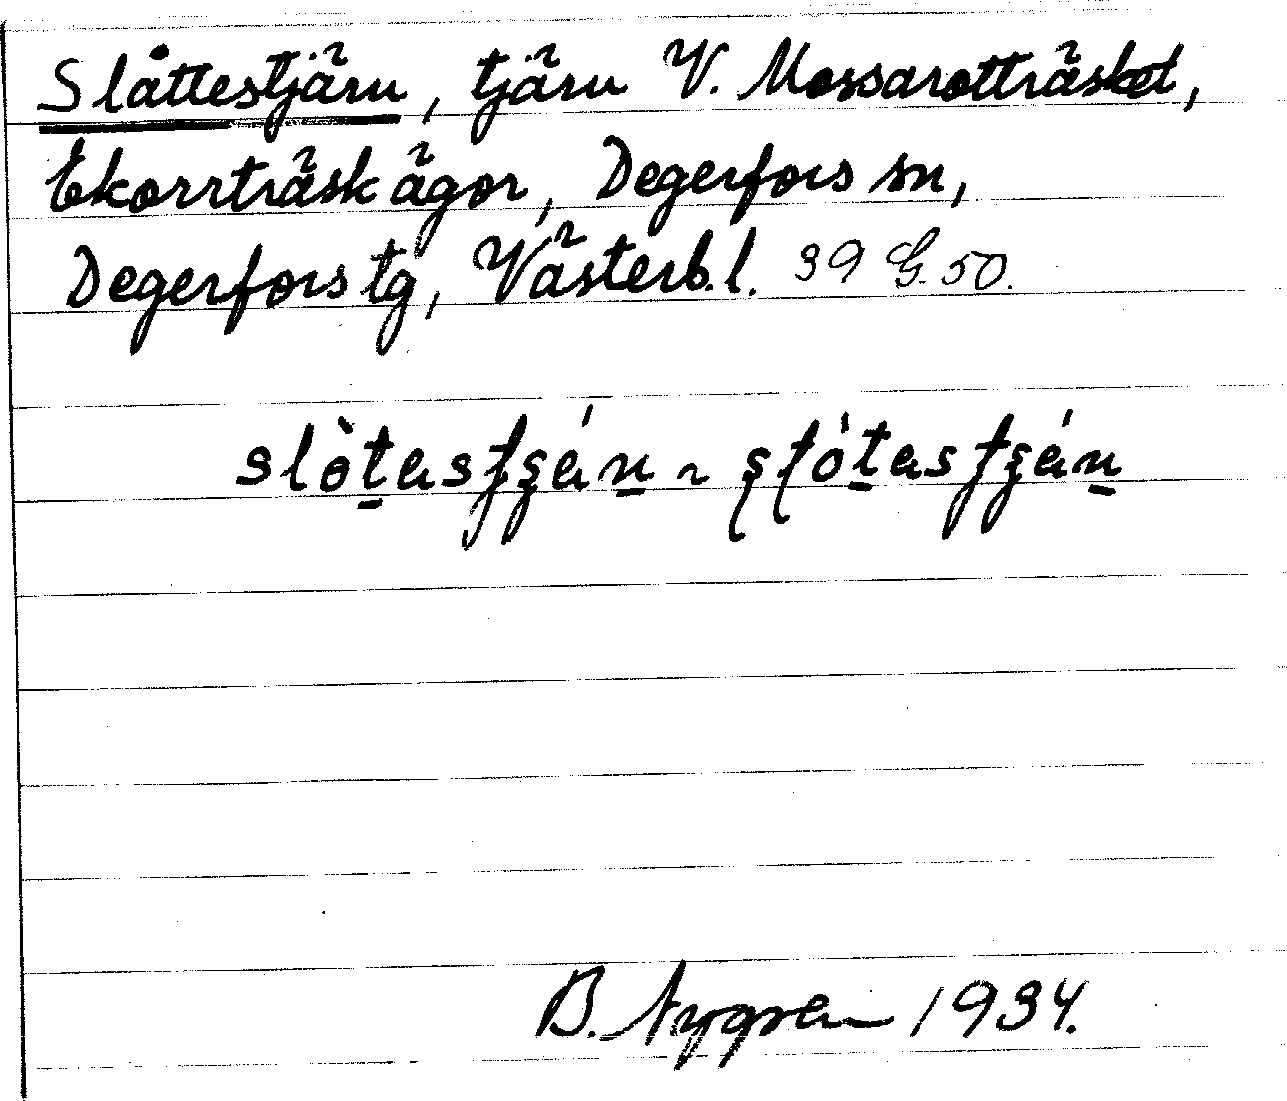 Slåttestjärn, tjärn V. Mossarotträsket,
Ekorrträsk ägor, Degerfors sn,
Degerfors tg, Västerb. l. 39 G. 50.
B. Nygren 1934.